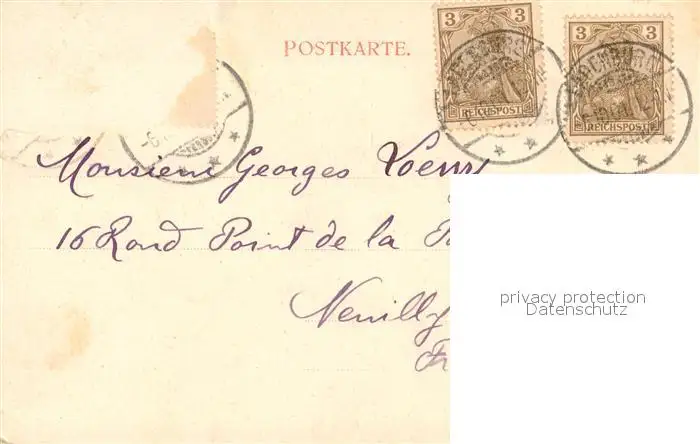 POSTKARTE.
3 3
REICHSPOST REICHSPOST
Monsieur Georges
16 Rond Point de la
Neuilly
privacy protection
Datenschutz